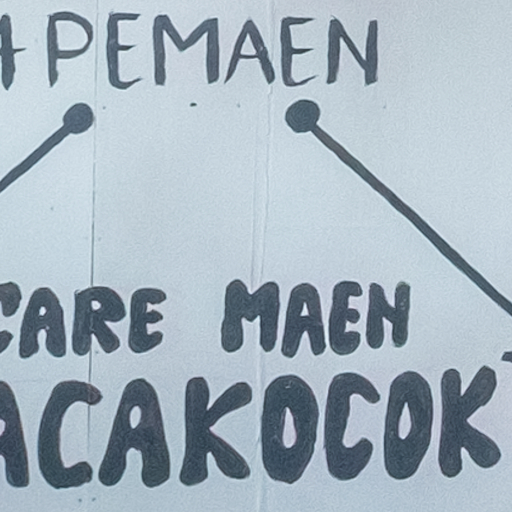 PEMAEN
CARE MAEN
ACAKOCOK